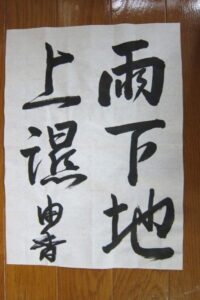 雨下地
上濕
由香